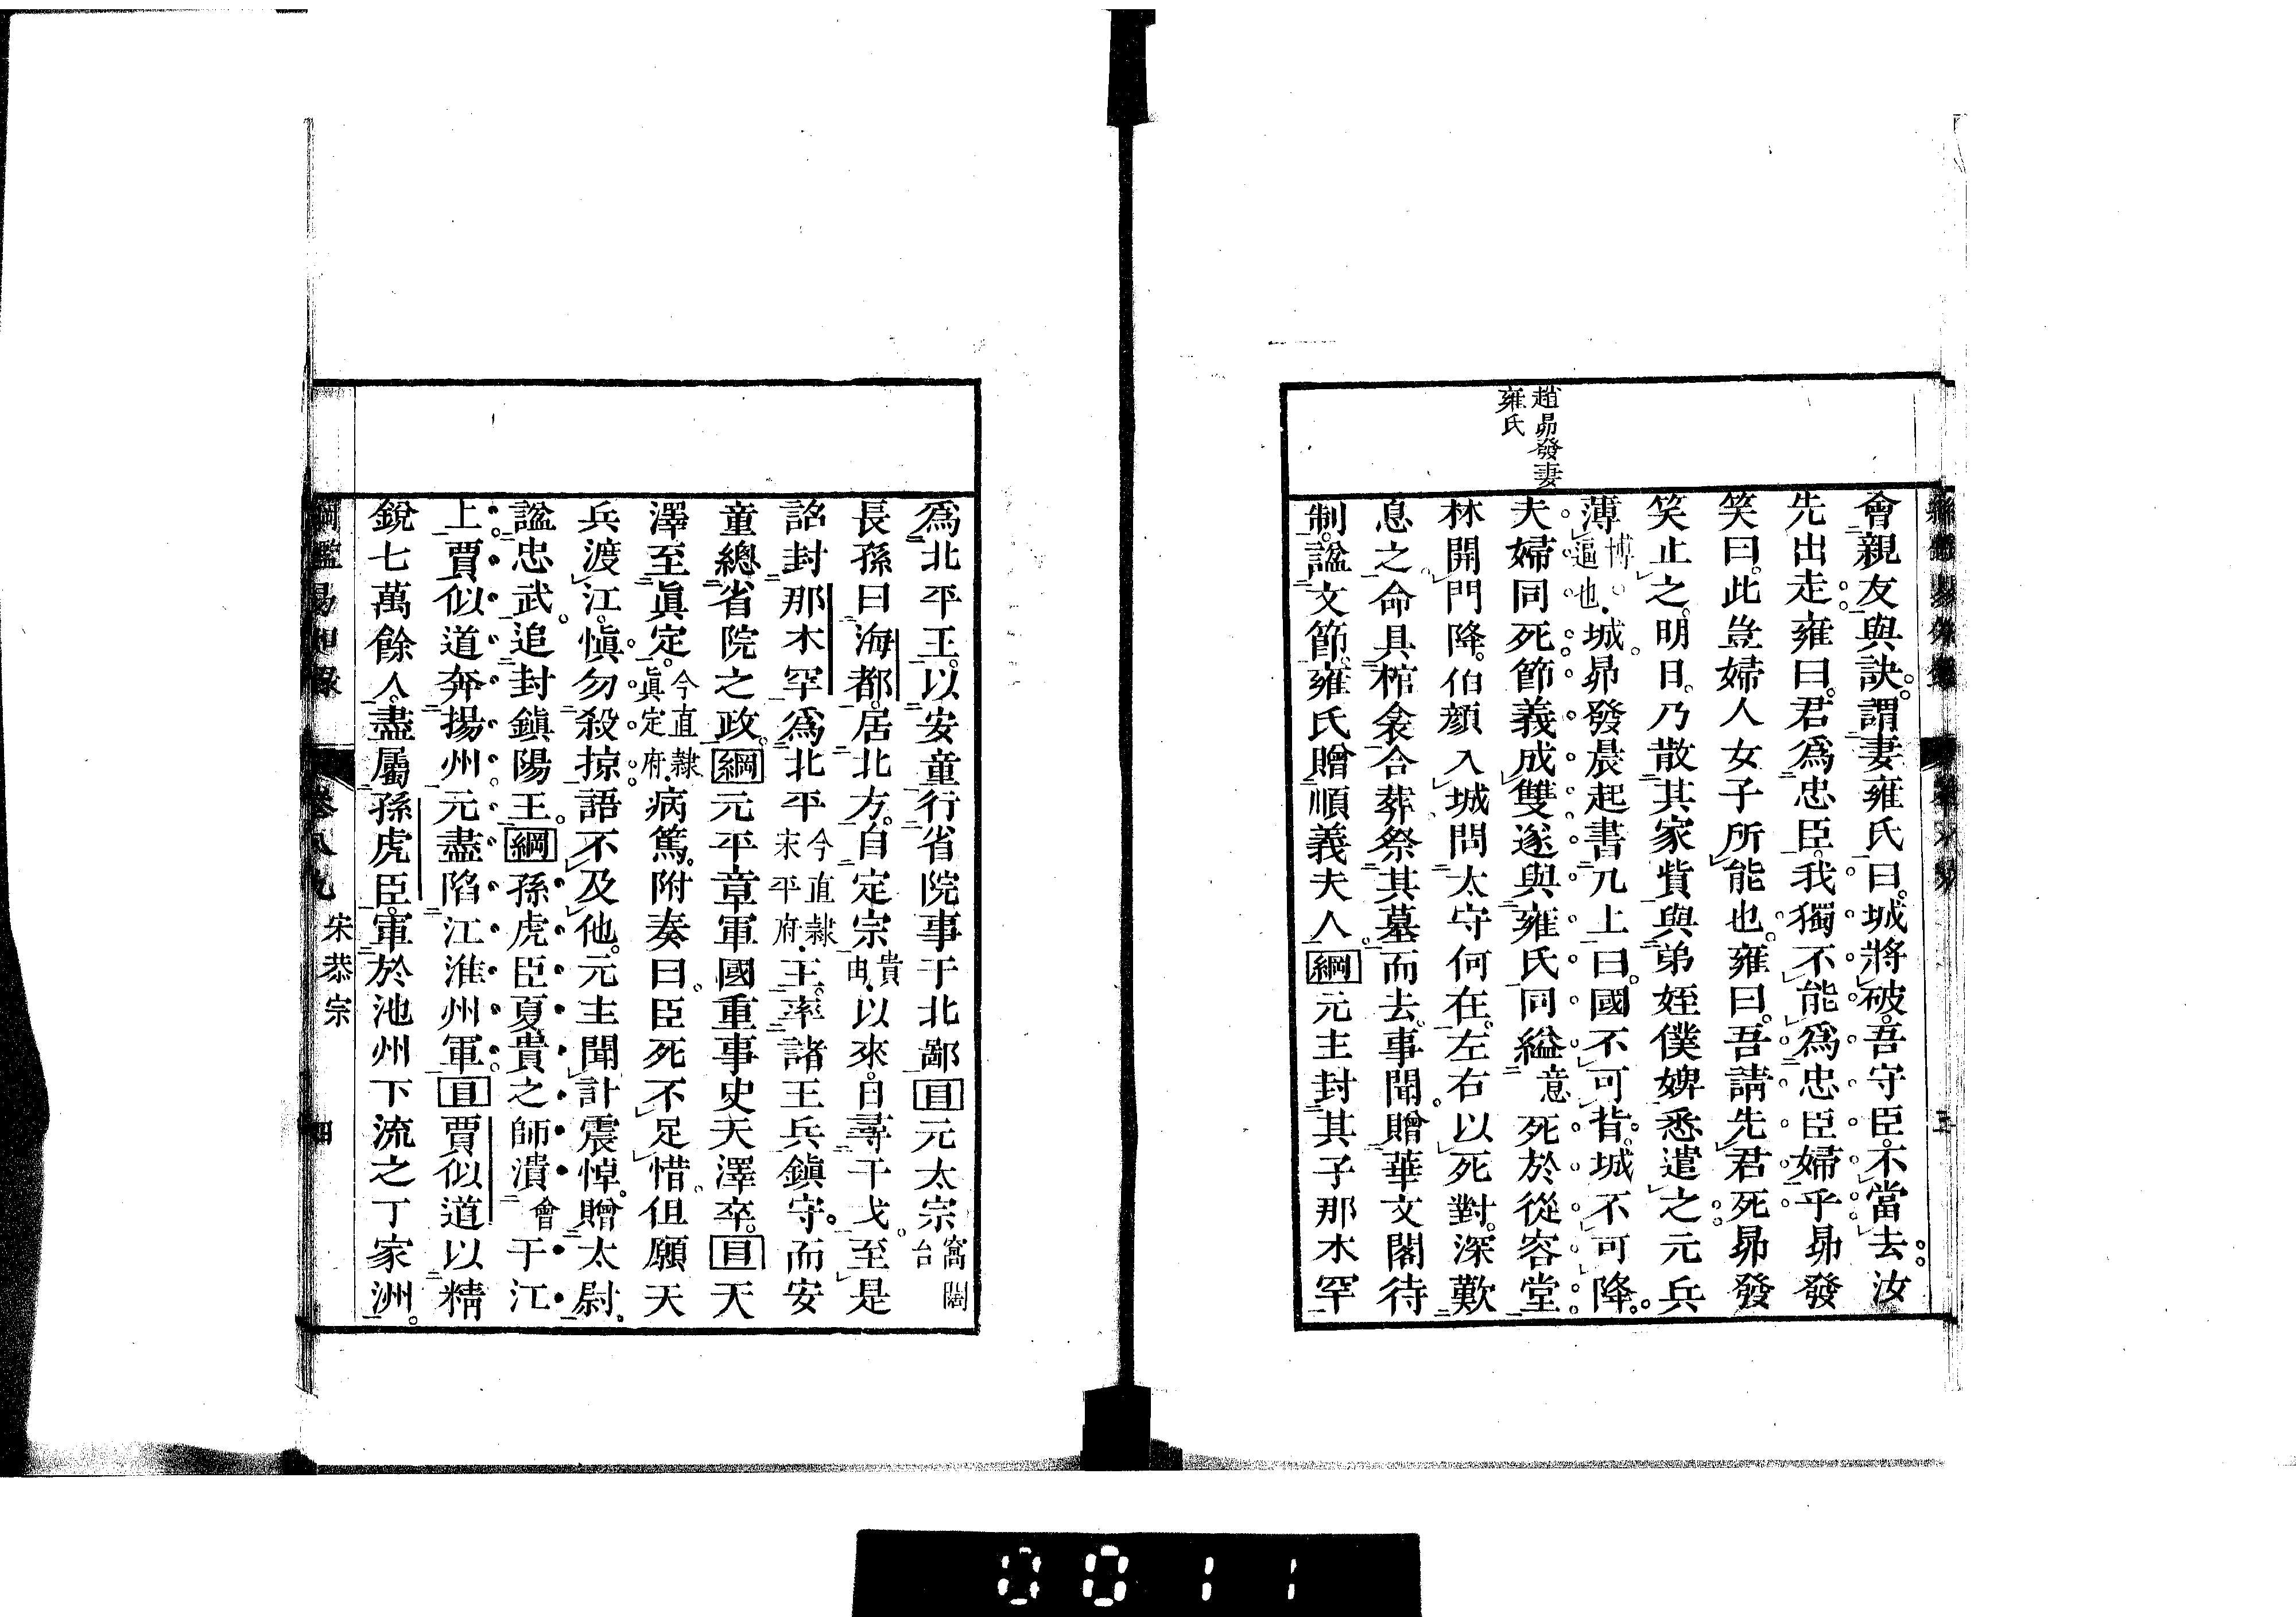 趙昴發妻
雍氏
會親友與訣。謂妻雍氏曰。城將破。吾守臣。不當去。汝
先出走。雍曰。君爲忠臣。我獨不能爲忠臣婦乎昴發
笑曰。此豈婦人女子所能也。雍曰。吾請先君死昴發
笑止之。明日。乃散其家貲與弟姪僕婢悉遣之元兵
薄博逼也城昴發晨起書几上曰。國不可背。城不可降。
夫婦同死節義成雙遂與雍氏同縊意死於從容堂
林開門降。伯顔入城問太守何在。左右以死對。深歎
息之命具棺衾合葬祭其墓而去。事聞。贈華文閣待
制。諡文節。雍氏贈順義夫人。綱元主封其子那木罕
爲北平王。以安童行省院事于北鄙目元太宗窩闊台
長孫曰海都。居北方。自定宗貴由以來。日尋干戈。至是
詔封那木罕爲北平今直隸末平府王。率諸王兵鎭守。而安
童總省院之政。綱元平章軍國重事史天澤卒。目天
澤至眞定。今直隸眞定府病篤。附奏曰。臣死不足惜。但願天
兵渡江。愼勿殺掠語不及他。元主聞訃震悼。贈太尉。
諡忠武。追封鎭陽王。綱孫虎臣夏貴之師潰會于江
上。賈似道奔揚州元盡陷江淮州軍。目賈似道以精
銳七萬餘人。盡屬孫虎臣。軍於池州下流之丁家洲。
綱鑑易知錄 卷八九 宋恭宗 四
0011